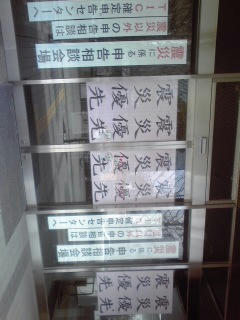 震災に係る申告相談会場
震災以外の申告相談は
TIC確定申告センターへ
震災
優先
震災
優先
震災に係る申告相談会場
震災以外の申告相談は
確定申告センターへ
震災
優先